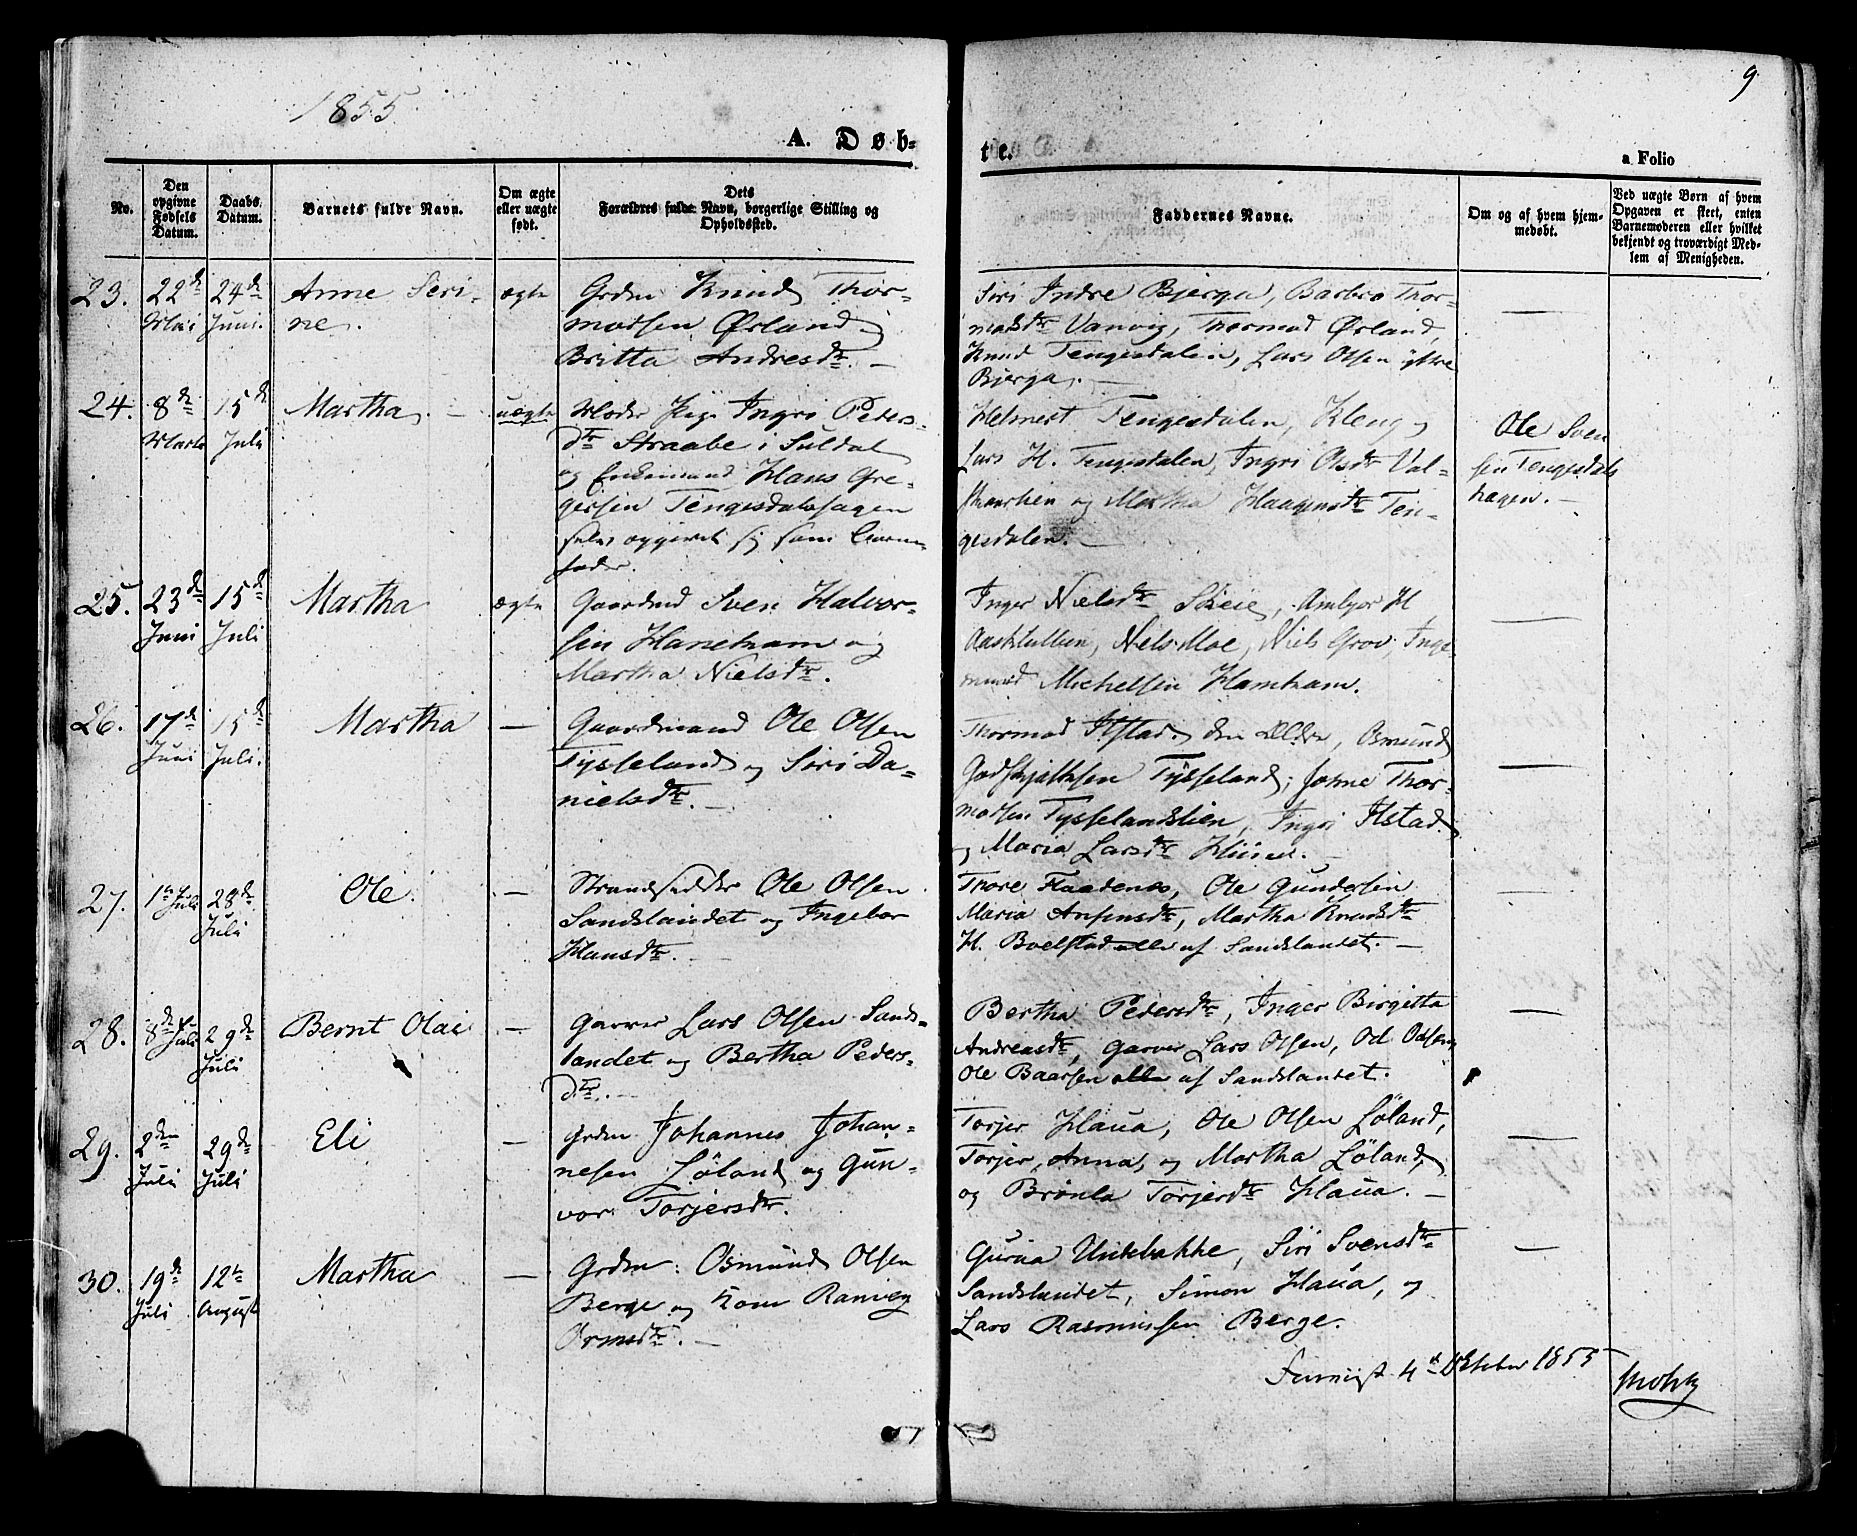 1855
9
A. Døb-
te.
a Folio
No.
Den opgivne Fødsels Datum.
Daabs Datum.
Barnets fulde Navn.
Om ægte eller uægte født.
Dets Forældres fulde Navn, borgerlige Stilling og Opholdssted.
Faddernes Navne.
Om og af hvem hjemmedøbt.
Ved uægte Børn af hvem Opgaven er skeet, enten Barnemoderen eller hvilket bekjendt og troværdigt Medlem af Menigheden.
23. 22de Mai 24de Juni.
Anne Seri-
ne.
ægte
Grdm Knud Thor-
modsen Ørland og
Britta Andresdtr. —
Siri Indre Bjerga, Barbro Thor-
modsdtr Vanvig, Thormod Ørland,
Knud Tengesdalen, Lars Olsen ydtre
Bjerga. —
24. 8de Marts 15de Juli
Martha. —
uægte
Moder Pige Ingri Peders-
dtr Straabe i Suldal
og Enkemand Hans Gre-
gersen Tengesdalshagen
selv opgivet sig som Barne-
fader.
Helmert Tengesdalen, Kleng og
Lars H. Tengesdalen, Ingri Olsdtr Val-
og Martha Haagensdtr Ten-
gesdalen. —
Ole Sven
sen Tengesdals
hagen. —
25. 23de Juni 15de Juli
Martha
ægte
Gaardmd Sven Halvor-
sen Hanekam og
Martha Nielsdtr.
Inger Nielsdtr Skeie, H
Niels Moe, Niels Grov, Inge-
mund Michelsen Hamkam.
26. 17de Juni 15de Juli.
Martha
—
Gaardmand Ole Olsen
Tysseland og Siri Da-
nielsdtr. —
Thormod Ilstad den Ældre, Omund
Godskjalksen Tysseland, Johne Thor-
modsen Tysselandslien, Ingri Ilstad
og Maria Larsdtr
27. 1ste Juli 28de Juli
Ole.
—
Strandsidder Ole Olsen
Sandslandet og Ingebor
Hansdtr. —
Thore Flaadenes, Ole Gundersen
Maria Ansensdtr, Martha Knudsdtr
H. Boelstad alle af Sandslandet. —
28. 8de Juli 29de Juli
Bernt Olai
—
Garver Lars Olsen Sands-
landet og Bertha Peders-
dtr. —
Bertha Pedersdtr, Inger Birgitta
Andreasdtr, Garver Lars Olsen, Od Odsen,
Ole Baarsen alle af Sandslandet.
29. 2den Juli 29de Juli
Eli
—
Grdm Johannes Johan-
nesen Løland og Gun-
vor Torjersdtr.
Torjer Haua, Ole Olsen Løland,
Torjer, Anna, og Martha Løland,
og Brønla Torjersdtr Haua. —
30. 19de Juli 12te August
Martha
—
Grdm: Osmund Olsen
Berge og Kone Ranveg
Ormsdtr. —
Guroa Unkebakke, Siri Svensdtr
Sandslandet, Simon Haua, og
Lars Rasmussen Berge.
4de Oktober 1855